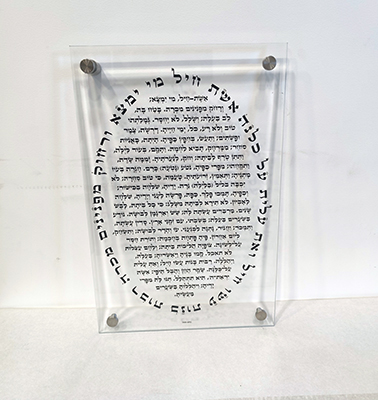 אשת חיל מי ימצא ורחוק מפנינים מכרה רבות בנות עשו חיל ואת עלית על כלנה
אשת-חיל, מי ימצא;
ורחוק מפנינים מכרה. בטח בה,
לב בעלה; ושלל, לא יחסר. גמלתהו
טוב ולא רע, כל, ימי חייה. דרשה, צמר
ופשתים; ותעש, בחפץ כפיה. היתה, כאניות
סוחר; ממרחק, תביא לחמה. ותקם, בעוד לילה,
ותתן טרף לביתה; וחק, לנערתיה. זממה שדה,
ותקחהו; מפרי כפיה, נטעה כרם. חגרה בעוז
מתניה; ותאמץ, זרועתיה. טעמה, כי טוב סחרה; לא
יכבה בלילה נרה. ידיה, שלחה בכישור;
וכפיה, תמכו פלך. כפה, פרשה לעני; וידיה, שלחה
לאביון. לא תירא לביתה משלג: כי כל ביתה, לבש
שנים. מרבדים עשתה לה; שש וארגמן לבושה. נודע
בשערים בעלה; בשבתו, עם זקני ארץ. סדין עשתה,
ותמכר; וחגור, נתנה לכנעני. עז והדר לבושה; ותשחק,
ליום אחרון. פיה, פתחה בחכמה; ותורת חסד
על לשונה. צופיה הליכות ביתה; ולחם עצלות
לא תאכל. קמו בניה ויאשרוה; בעלה,
ויהללה. רבות בנות עשו חיל; ואת עלית
על-כלנה. שקר החן והבל היפי: אשה
יראת-יהוה, היא תתהלל. תנו לה מפרי
ידיה; ויהללוה בשערים
מעשיה.